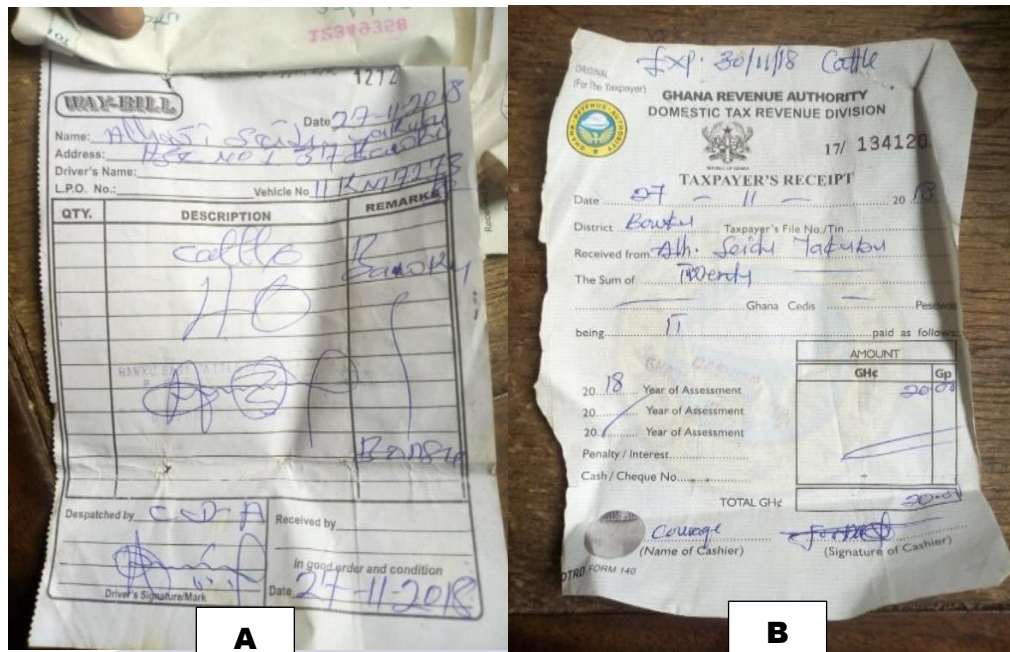 12349358
1272
WAY-BILL
Date 27-11-2018
Name: Alhaji Seidu Yakubu
Address: HSE NO
Driver's Name:
L.P.O. No.: Vehicle No
QTY. DESCRIPTION REMARKS
cattle
40
BAWKU CATTLE
Despatched by C-D-A
Received by
In good order and condition
Driver's Signature/Mark
Date 27-11-2018
A
Exp: 30/11/18 Cattle
ORIGINAL
(For The Taxpayer)
GHANA REVENUE AUTHORITY
DOMESTIC TAX REVENUE DIVISION
GHANA REVENUE AUTHORITY
REPUBLIC OF GHANA
17/ 134120
TAXPAYER'S RECEIPT
Date 27 - 11 - 20 18
District Bawku Taxpayer's File No./Tin
Received from Alh. Seidu Yakubu
The Sum of Twenty
Ghana Cedis — Pesewas
being IT paid as follows
AMOUNT
GH¢ Gp
20 18 Year of Assessment 20.00
20 Year of Assessment
20 Year of Assessment
Penalty / Interest
Cash / Cheque No.
TOTAL GH¢ 20.00
Courage
(Name of Cashier) (Signature of Cashier)
DTRD FORM 140
B